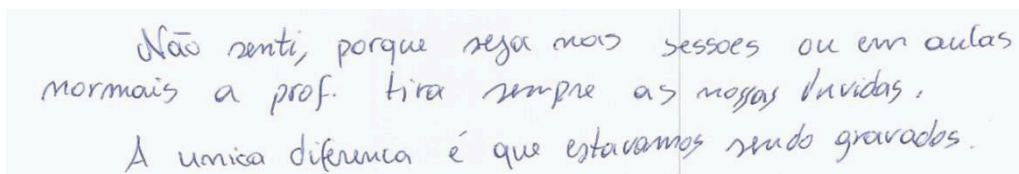 Não senti, porque seja nas sessoes ou em aulas
normais a prof. tira sempre as nossas duvidas.
A unica diferenca é que estavamos sendo gravados.